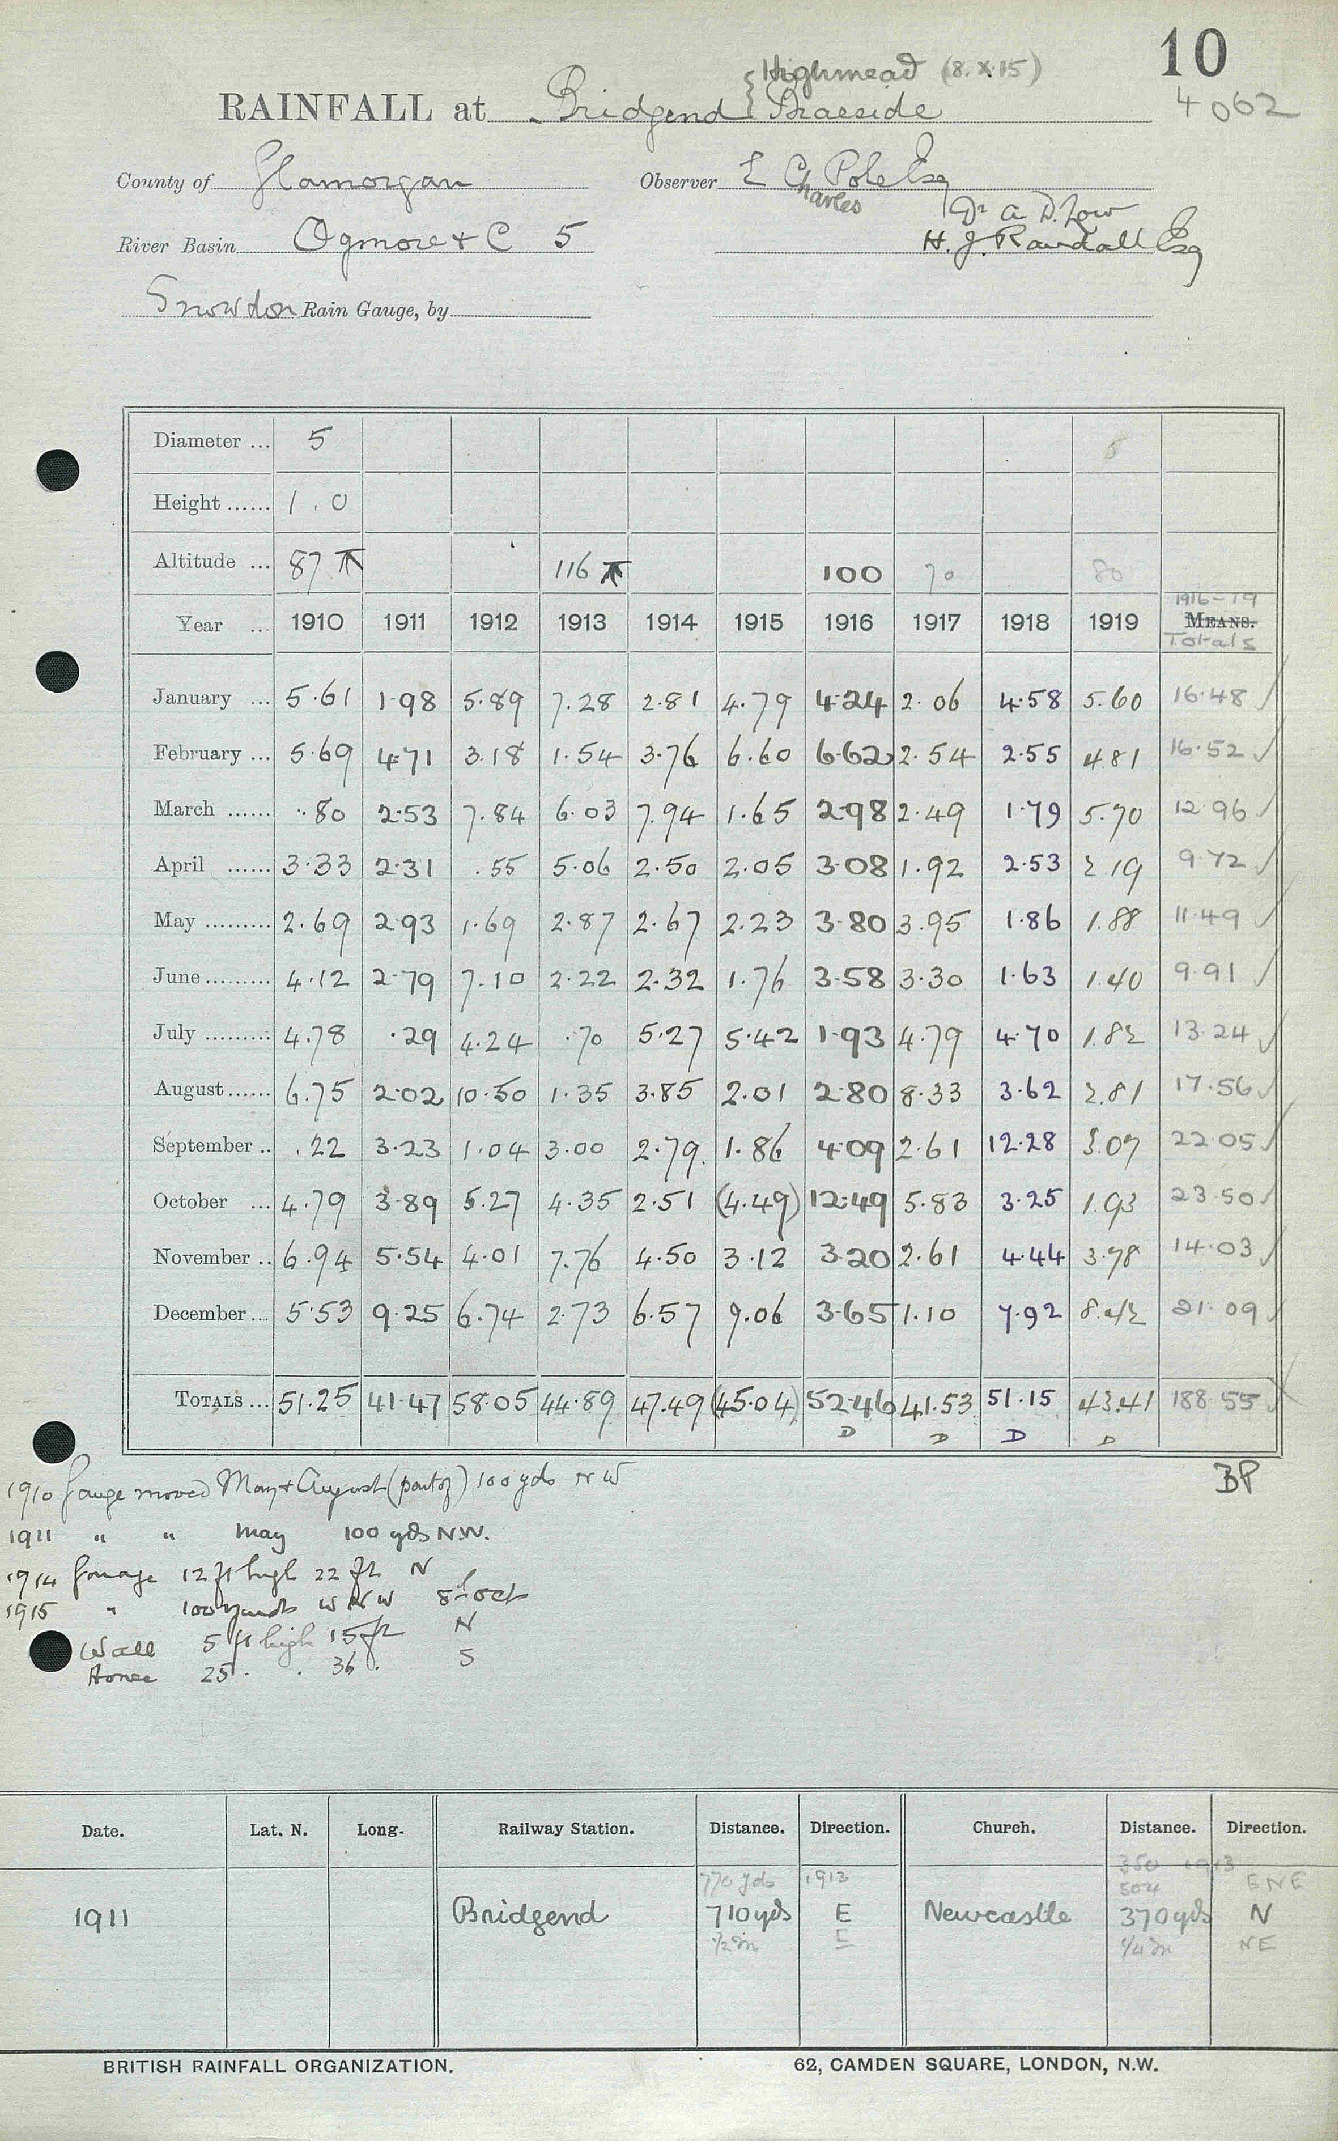 10
Highmead (8.X.15)
RAINFALL at Bridgend { Braeside
4062
County of Glamorgan Observer E C Pole Esq
Charles
Dr A D. Low
River Basin Ogmore + C 5 H. J. Randall Esq
Snowdon Rain Gauge, by
Diameter ... 5 5
Height ...... 1.0
Altitude ... 87 116 100 70 80
1916-19
Year ... 1910 1911 1912 1913 1914 1915 1916 1917 1918 1919 MEANS.
Totals
January ... 5.61 1.98 5.89 7.28 2.81 4.79 4.24 2.06 4.58 5.60 16.48
February ... 5.69 4.71 3.18 1.54 3.76 6.60 6.62 2.54 2.55 4.81 16.52
March ...... .80 2.53 7.84 6.03 7.94 1.65 2.98 2.49 1.79 5.70 12.96
April ...... 3.33 2.31 .55 5.06 2.50 2.05 3.08 1.92 2.53 2.19 9.72
May ......... 2.69 2.93 1.69 2.87 2.67 2.23 3.80 3.95 1.86 1.88 11.49
June ......... 4.12 2.79 7.10 2.22 2.32 1.76 3.58 3.30 1.63 1.40 9.91
July ......... 4.78 .29 4.24 .70 5.27 5.42 1.93 4.79 4.70 1.82 13.24
August ...... 6.75 2.02 10.50 1.35 3.85 2.01 2.80 8.33 3.62 2.81 17.56
September .. .22 3.23 1.04 3.00 2.79 1.86 4.09 2.61 12.28 3.07 22.05
October ... 4.79 3.89 5.27 4.35 2.51 (4.49) 12.49 5.83 3.25 1.93 23.50
November .. 6.94 5.54 4.01 7.76 4.50 3.12 3.20 2.61 4.44 3.78 14.03
December ... 5.53 9.25 6.74 2.73 6.57 9.06 3.65 1.10 7.92 8.42 21.09
TOTALS ... 51.25 41.47 58.05 44.89 47.49 (45.04) 52.46 41.53 51.15 43.41 188.55
D D D D
BP
1910 Gauge moved May + August (part of) 100 yds NW
1911 " " May 100 yds N.W.
1914 12 ft high 22 ft N
1915 " 100 yards WNW 8th Oct
Wall 5 ft high 15 ft N
House 25 . . 36 . S
Date. Lat. N. Long. Railway Station. Distance. Direction. Church. Distance. Direction.
770 yds 1913 350 1913 ENE
504
1911 Bridgend 710 yds E Newcastle 370 yds N
1/2 m E 1/4 m NE
BRITISH RAINFALL ORGANIZATION. 62, CAMDEN SQUARE, LONDON, N.W.